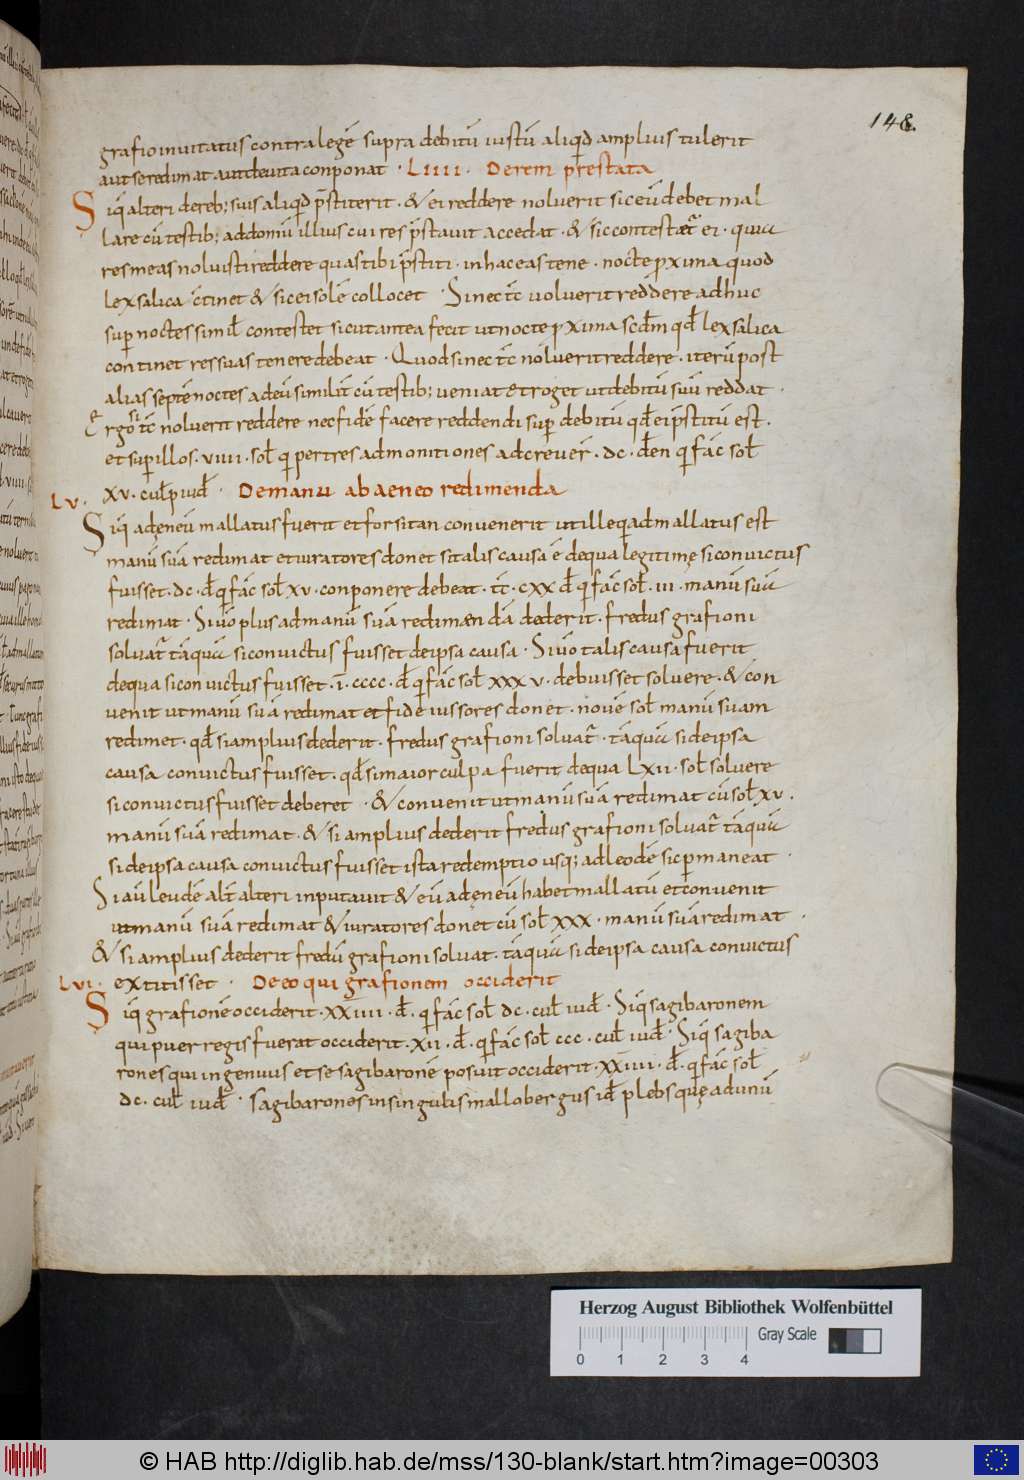 148.
grafio inuitatus contra legē supra debitū iustū aliqd amplius tulerit
aut se redimat aut deuita conponat · LIIII · De rem prestata
Siq̄ alteri de reb; suis aliqd p̄stiterit · & ei reddere noluerit sic eū debet mal
lare cū testib; ad domū illius cui res p̄stauit accedat · & sic contestetr̄ ei · quia
res meas noluisti reddere quas tibi p̄stiti · in hac eas tene · nocte proxima quod
lex salica c̄tinet & sic ei solē collocet · Si nec tc̄ uoluerit reddere adhuc
sup noctes simil̄ contestet sicut antea fecit ut nocte proxima scdm̄ qd̄ lex salica
continet res suas tenere debeat · Quod si nec tc̄ noluerit reddere · iterū post
alias septē noctes ad eū similit̄ cū testib; ueniat et roget ut debitū suū reddat ·
Ergo si tc̄ noluerit reddere nec fidē facere reddendi sup debitū qd̄ ei p̄stitū est ·
et sup illos · VIIII · sol̄ qi per tres admonitiones adcreuer̄ · DC · den̄ qi fac̄ sol̄
LV · XV · culp̄ iud̄ · De manu ab aeneo redimenda
Siq̄ ad ęneū mallatus fuerit et forsitan conuenerit ut ille qi admallatus est
manū suā redimat et iuratores donet si talis causa ē de qua legitimę si conuictus
fuisset · DC · d̄ qi fac̄ sol̄ XV · conponere debeat · tc̄ · CXX d̄ qi fac̄ sol̄ · III · manū suā
redimat · Si uō plus ad manū suā redimendā dederit · fredus grafioni
soluatr̄ tāquā si conuictus fuisset de ipsa causa · Si uō talis causa fuerit
de qua si conuictus fuisset · Ī · CCCC · d̄ qi fac̄ sol̄ XXXV · debuisset soluere · & con
uenit ut manū suā redimat et fideiussores donet · nouē sol̄ manū suam
redimet · qd̄ si amplius dederit · fredus grafioni soluatr̄ · tāquā si de ipsa
causa conuictus fuisset · qd̄ si maior culpa fuerit de qua LXII · sol̄ soluere
si conuictus fuisset deberet · & conuenit ut manū suā redimat cū sol̄ XV ·
manū suā redimat · & si amplius dederit fredus grafioni soluatr̄ tāquā
si de ipsa causa conuictus fuisset ista redemptio usq; ad leodē sic permaneat ·
Si aū leudē alt̄ alteri inputauit & eū ad ęneū habet mallatū et conuenit
ut manū suā redimat & iuratores donet cū sol̄ XXX · manū suā redimat ·
& si amplius dederit fredū grafioni soluat · tāquā si de ipsa causa conuictus
LVI · extitisset · De eo qui grafionem occiderit
Siq̄ grafionē occiderit · XXIIII · d̄ · qi fac̄ sol̄ DC · cul̄ iud̄ · Siq̄ sagibaronem
qui puer regis fuerat occiderit · XII · d̄ · qi fac̄ sol̄ CCC · cul̄ iud̄ · Siq̄ sagiba
rones qui ingenuus et se sagibaronē posuit occiderit · XXIIII · d̄ · qi fac̄ sol̄
DC · cul̄ iud̄ · Sagibarones in singulis mallobergus id̄ plebs quę ad unū
Herzog August Bibliothek Wolfenbüttel
Gray Scale
0 1 2 3 4
© HAB http://diglib.hab.de/mss/130-blank/start.htm?image=00303